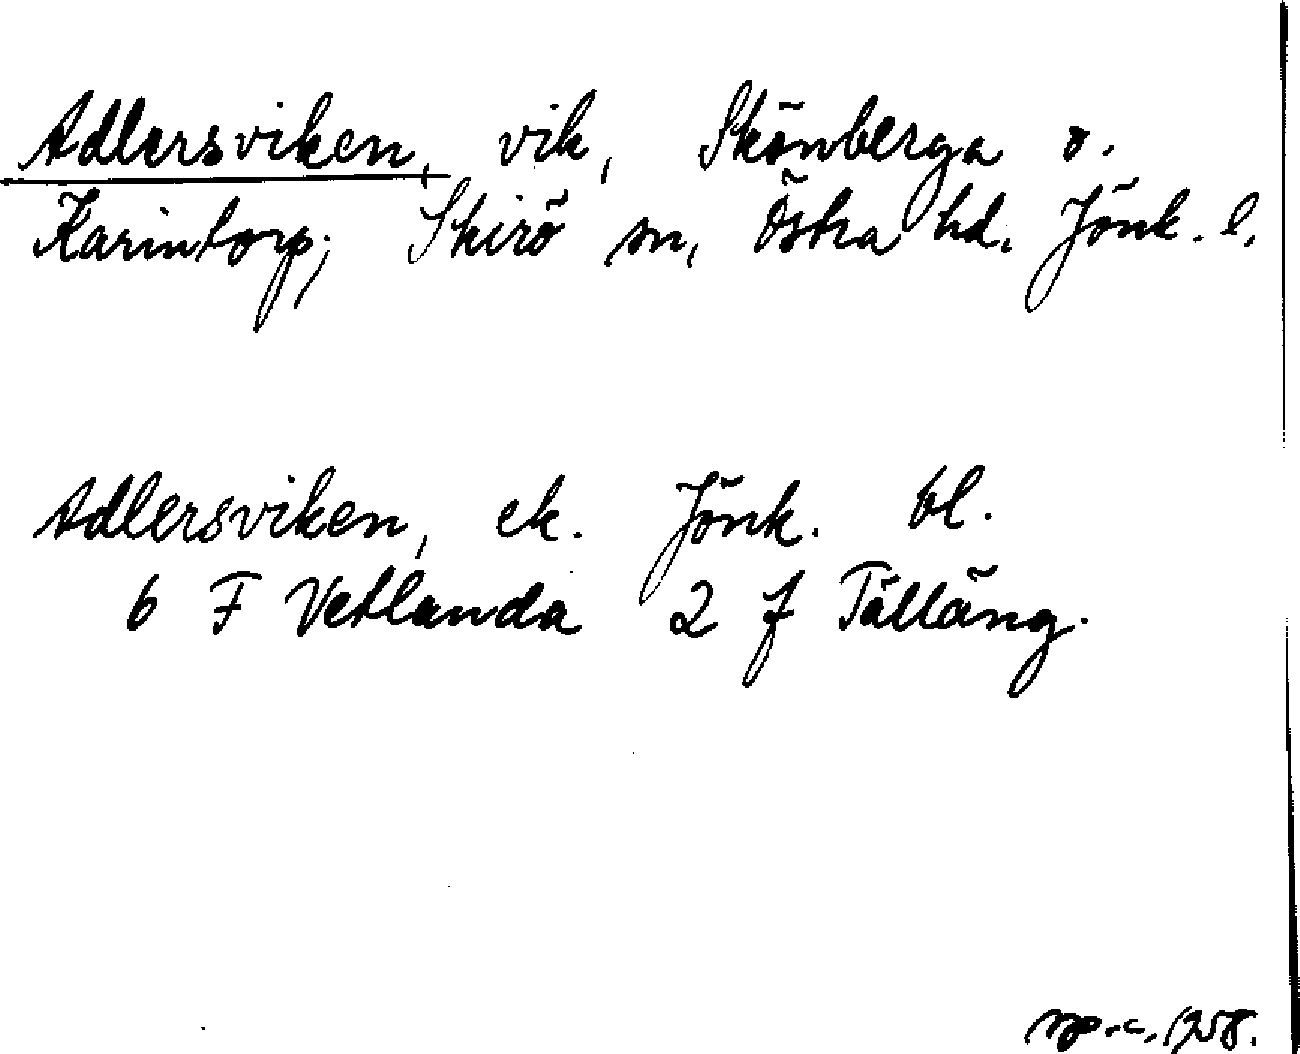 Adlersviken, vik, Skönberga o.
Karintorp; Skirö sn, Östra hd. Jönk. l.
Adlersviken, ek. Jönk. bl.
6 F Vetlanda 2 f Tälläng.
1958.